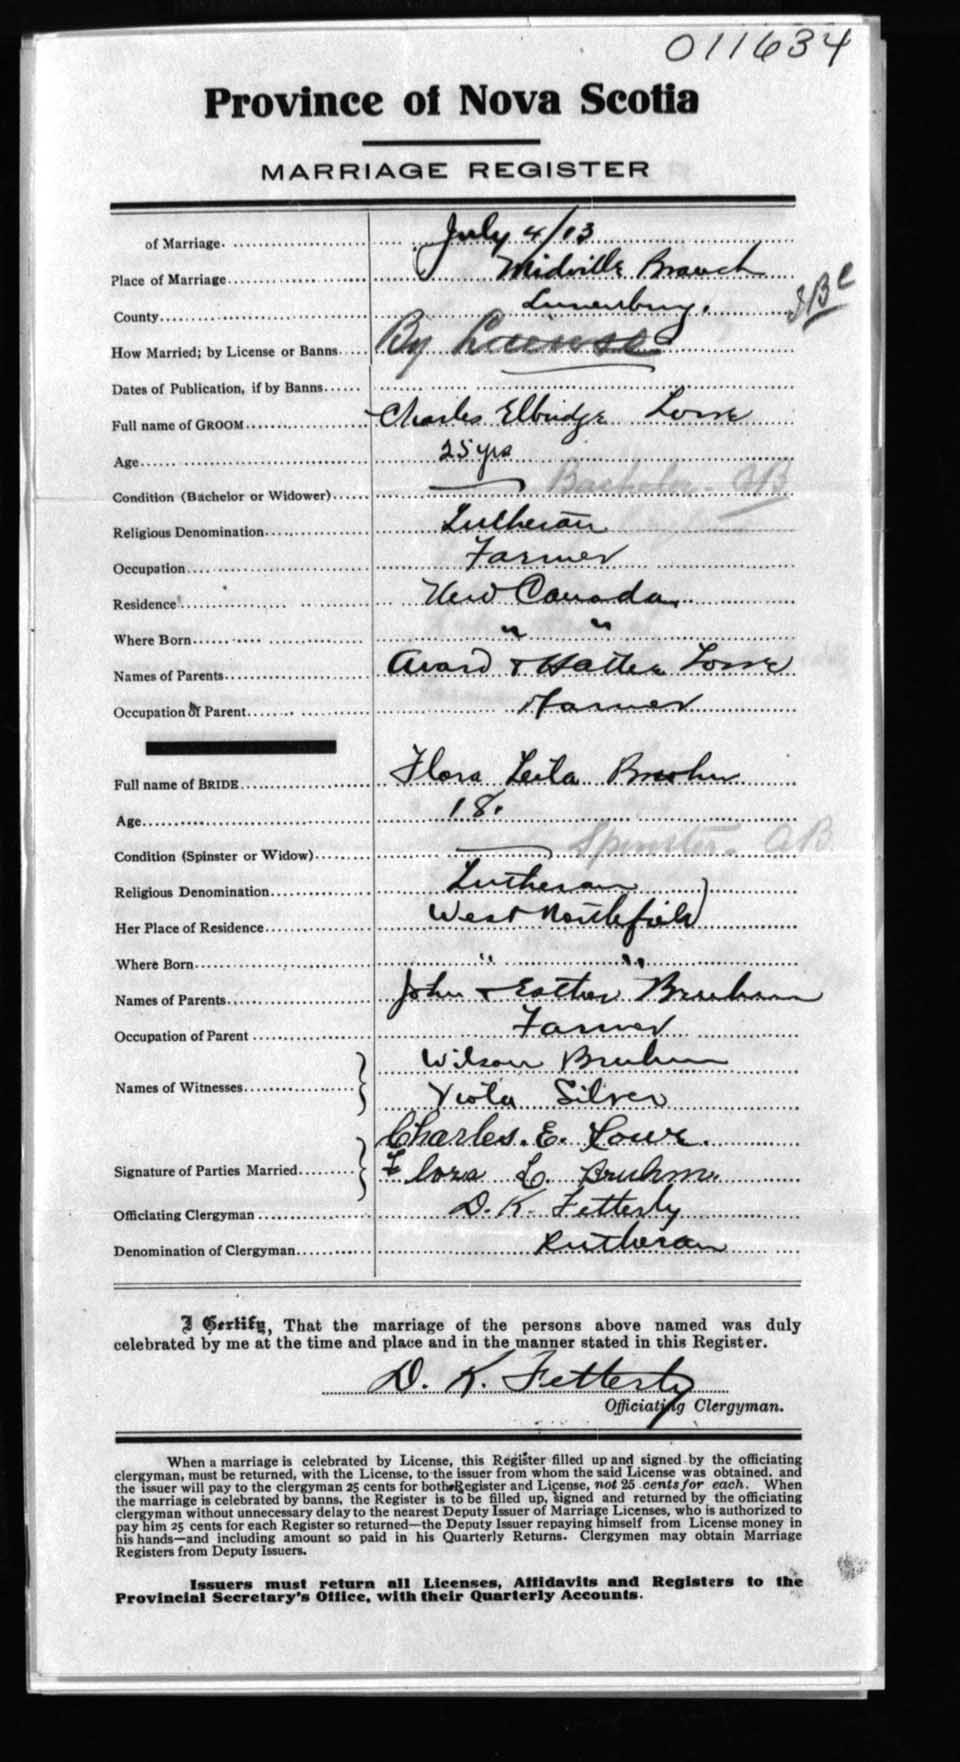 011634
Province of Nova Scotia
MARRIAGE REGISTER
of Marriage. July 4/13
Place of Marriage Midville Branch
County Lunenburg.
How Married; by License or Banns By License
Dates of Publication, if by Banns
Full name of GROOM Charles Elbridge Lowe
Age 25 yrs
Condition (Bachelor or Widower) Bachelor. AB
Religious Denomination Lutheran
Occupation Farmer
Residence New Canada
Where Born " "
Names of Parents Avard & Hattie Lowe
Occupation of Parent Farmer
Full name of BRIDE Flora Leila Bruhm
Age 18.
Condition (Spinster or Widow) Spinster. AB.
Religious Denomination Lutheran
Her Place of Residence West Northfield
Where Born " "
Names of Parents John & Esther Bruhm
Occupation of Parent Farmer
Names of Witnesses Wilson Bruhm
Viola Silver
Signature of Parties Married Charles. E. Lowe.
Flora L. Bruhm.
Officiating Clergyman D. K. Fetterly
Denomination of Clergyman Lutheran
I Certify, That the marriage of the persons above named was duly
celebrated by me at the time and place and in the manner stated in this Register.
D. K. Fetterly
Officiating Clergyman.
When a marriage is celebrated by License, this Register filled up and signed by the officiating
clergyman, must be returned, with the License, to the issuer from whom the said License was obtained. and
the issuer will pay to the clergyman 25 cents for both Register and License, not 25 cents for each. When
the marriage is celebrated by banns, the Register is to be filled up, signed and returned by the officiating
clergyman without unnecessary delay to the nearest Deputy Issuer of Marriage Licenses, who is authorized to
pay him 25 cents for each Register so returned—the Deputy Issuer repaying himself from License money in
his hands—and including amount so paid in his Quarterly Returns. Clergymen may obtain Marriage
Registers from Deputy Issuers.
Issuers must return all Licenses, Affidavits and Registers to the
Provincial Secretary's Office, with their Quarterly Accounts.